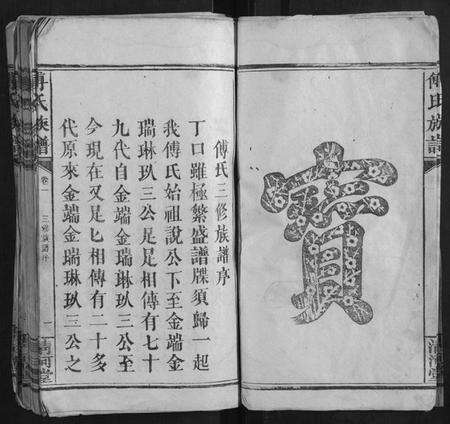 傅氏族譜
清河堂
寶
傅氏三修族譜序
丁口雖極繁盛譜牒須歸一起
我傅氏始祖說公下至金端金
瑞琳玖三公足足相傳有七十
九代自金端金瑞琳玖三公至
今現在又足匕相傳有二十多
代原來金端金瑞琳玖三公之
傅氏族譜
卷一
三修族譜序
一
清河堂